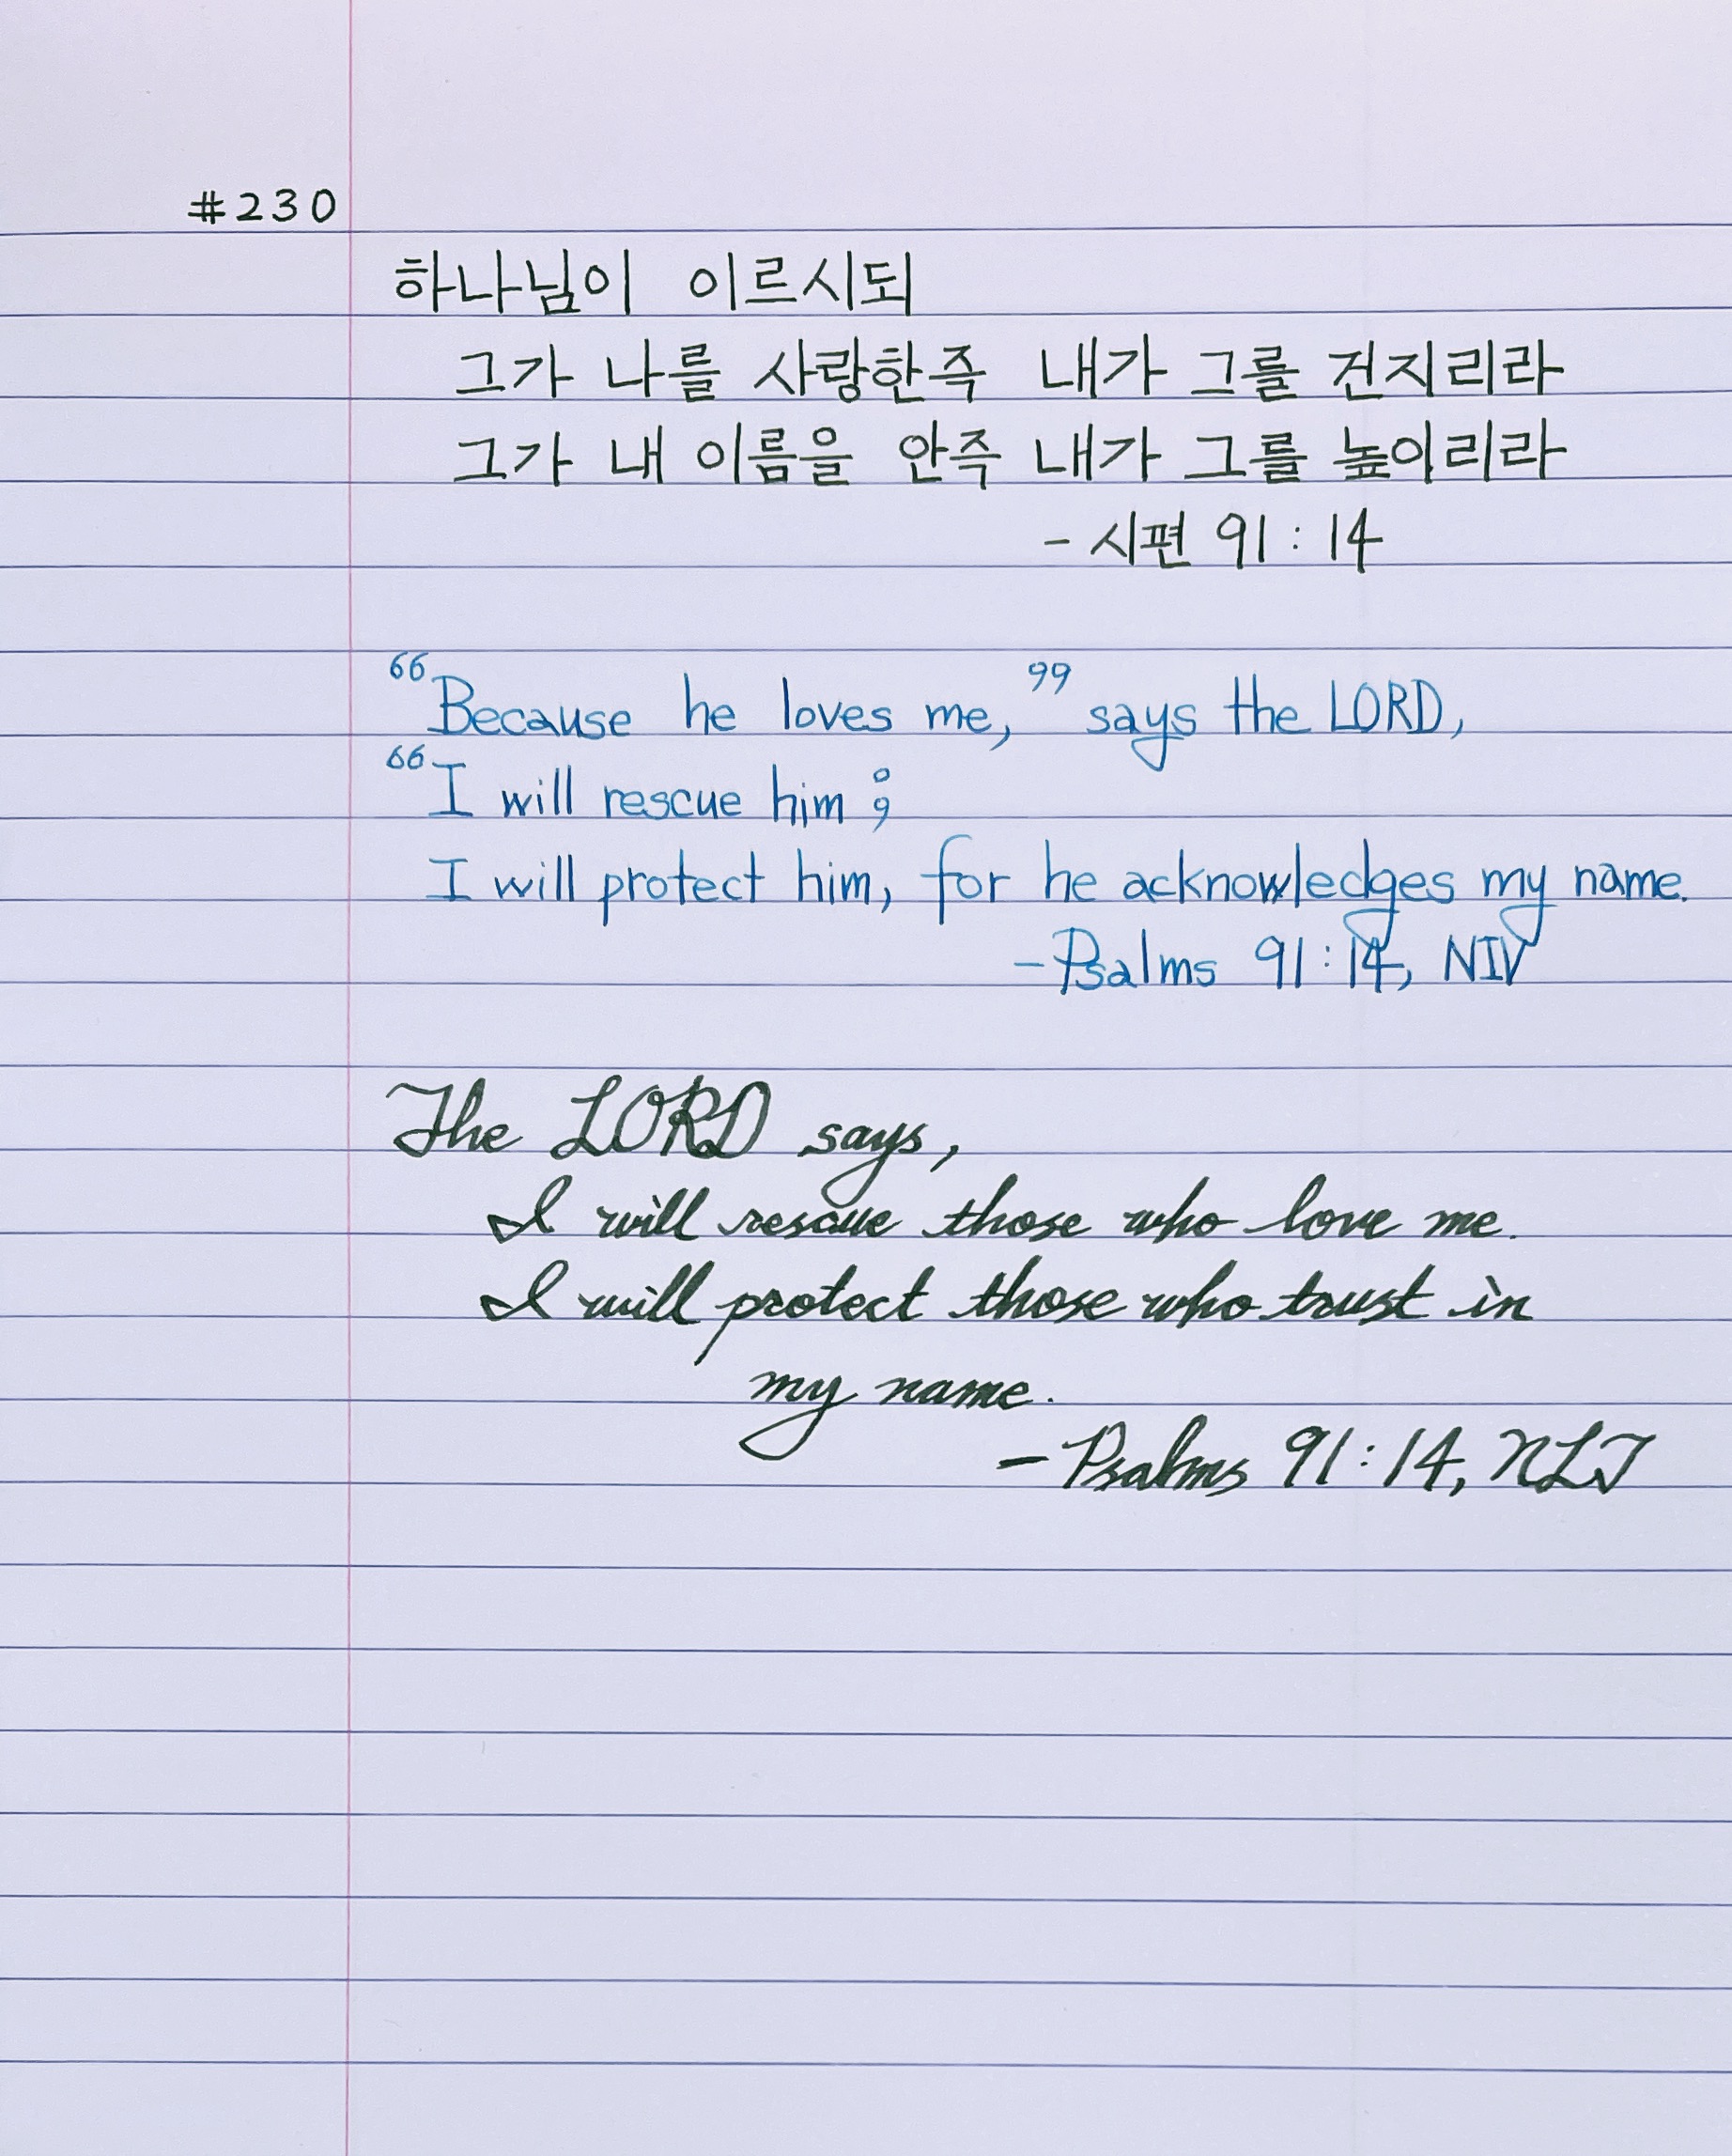 #230
하나님이 이르시되
그가 나를 사랑한즉 내가 그를 건지리라
그가 내 이름을 안즉 내가 그를 높이리라
- 시편 91 : 14
“Because he loves me,” says the LORD,
“I will rescue him ;
I will protect him, for he acknowledges my name.
- Psalms 91 : 14, NIV
The LORD says,
I will rescue those who love me.
I will protect those who trust in
my name.
- Psalms 91 : 14, NLT